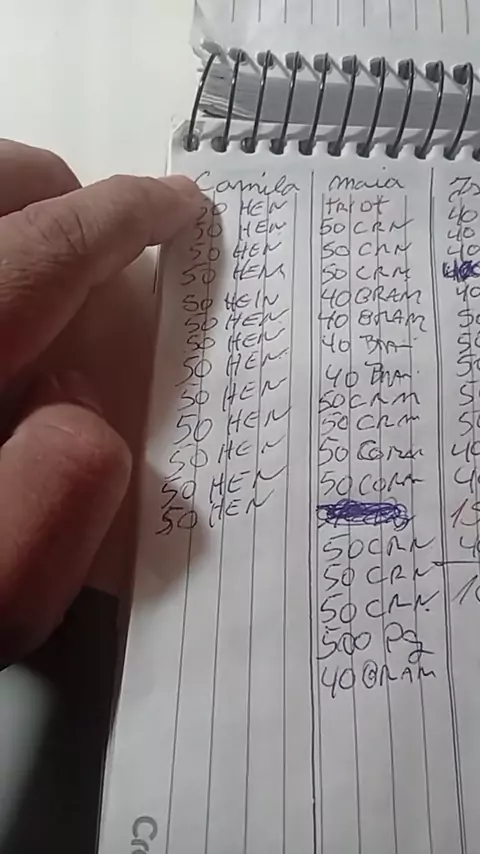 Camila
50 HEN
50 HEN
50 HEN
50 HEN
50 HEN
50 HEN
50 HEN
50 HEN
50 HEN
50 HEN
50 HEN
50 HEN
50 HEN
maia
50 CRN
50 CRN
50 CRM
40 GRAM
40 GRAM
40
40
50 CRM
50 CRM
50
50
50 CRN
50 CRN
50 CRN
500 Pg
40 GRAM
40
40
40
40
50
50
50
50
50
40
40
15
40
10